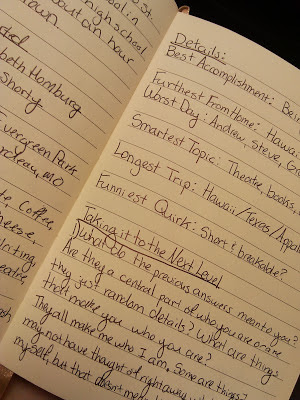 St.
school in
high school
town.
about an hour
beth Homburg
Shorty
Evergreen Park
MO
Coffee,
Details:
Best Accomplishment: Bein
Furthest From Home: Hawaii
Worst Day: Andrew, Steve, Gra
Smartest Topic: Theatre, books,
Longest Trip: Hawaii/Texas/Appal
Funniest Quirk: Short & breakable?
Taking it to the Next Level
What do the previous answers mean to you?
Are they a central part of who you are or are
they just random details? What are things
that make you who you are?
They all make me who I am. Some are things I
may not have thought of right away
myself, but that doesn't